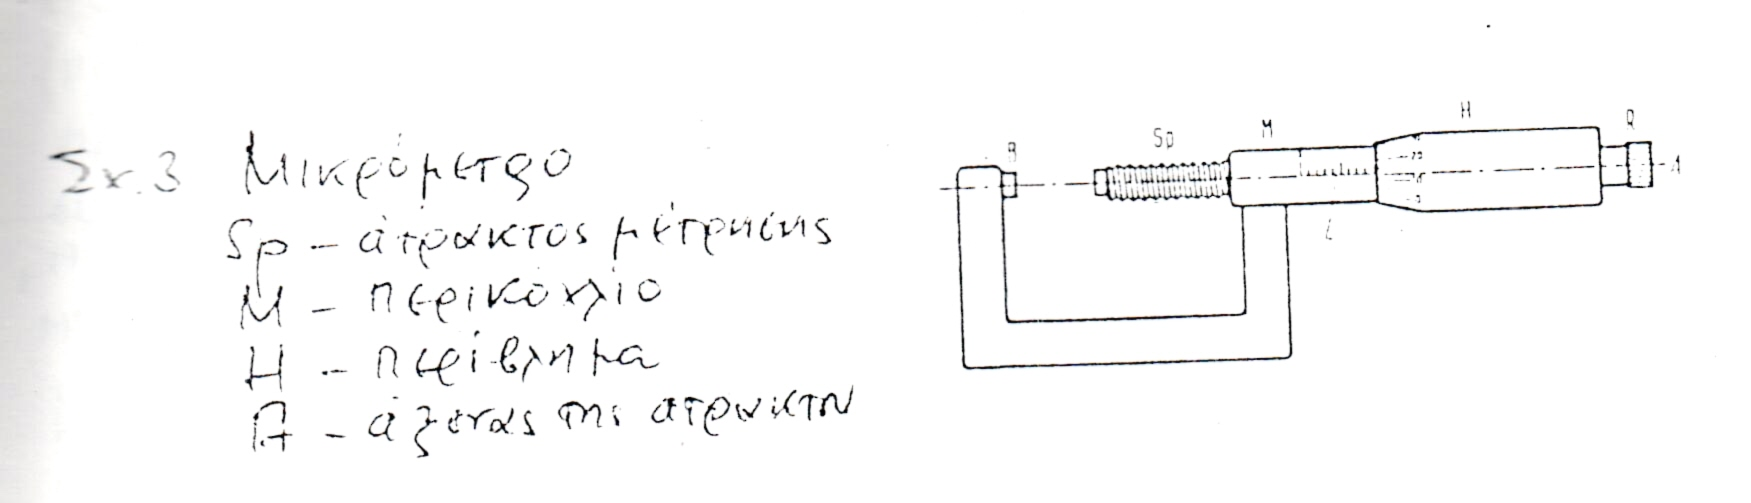 Σχ. 3 Μικρόμετρο
Sp - άτρακτος μέτρησης
Μ - περικόχλιο
Η - περίβλημα
Α - άξονας της ατράκτου
B Sp M H R A
L